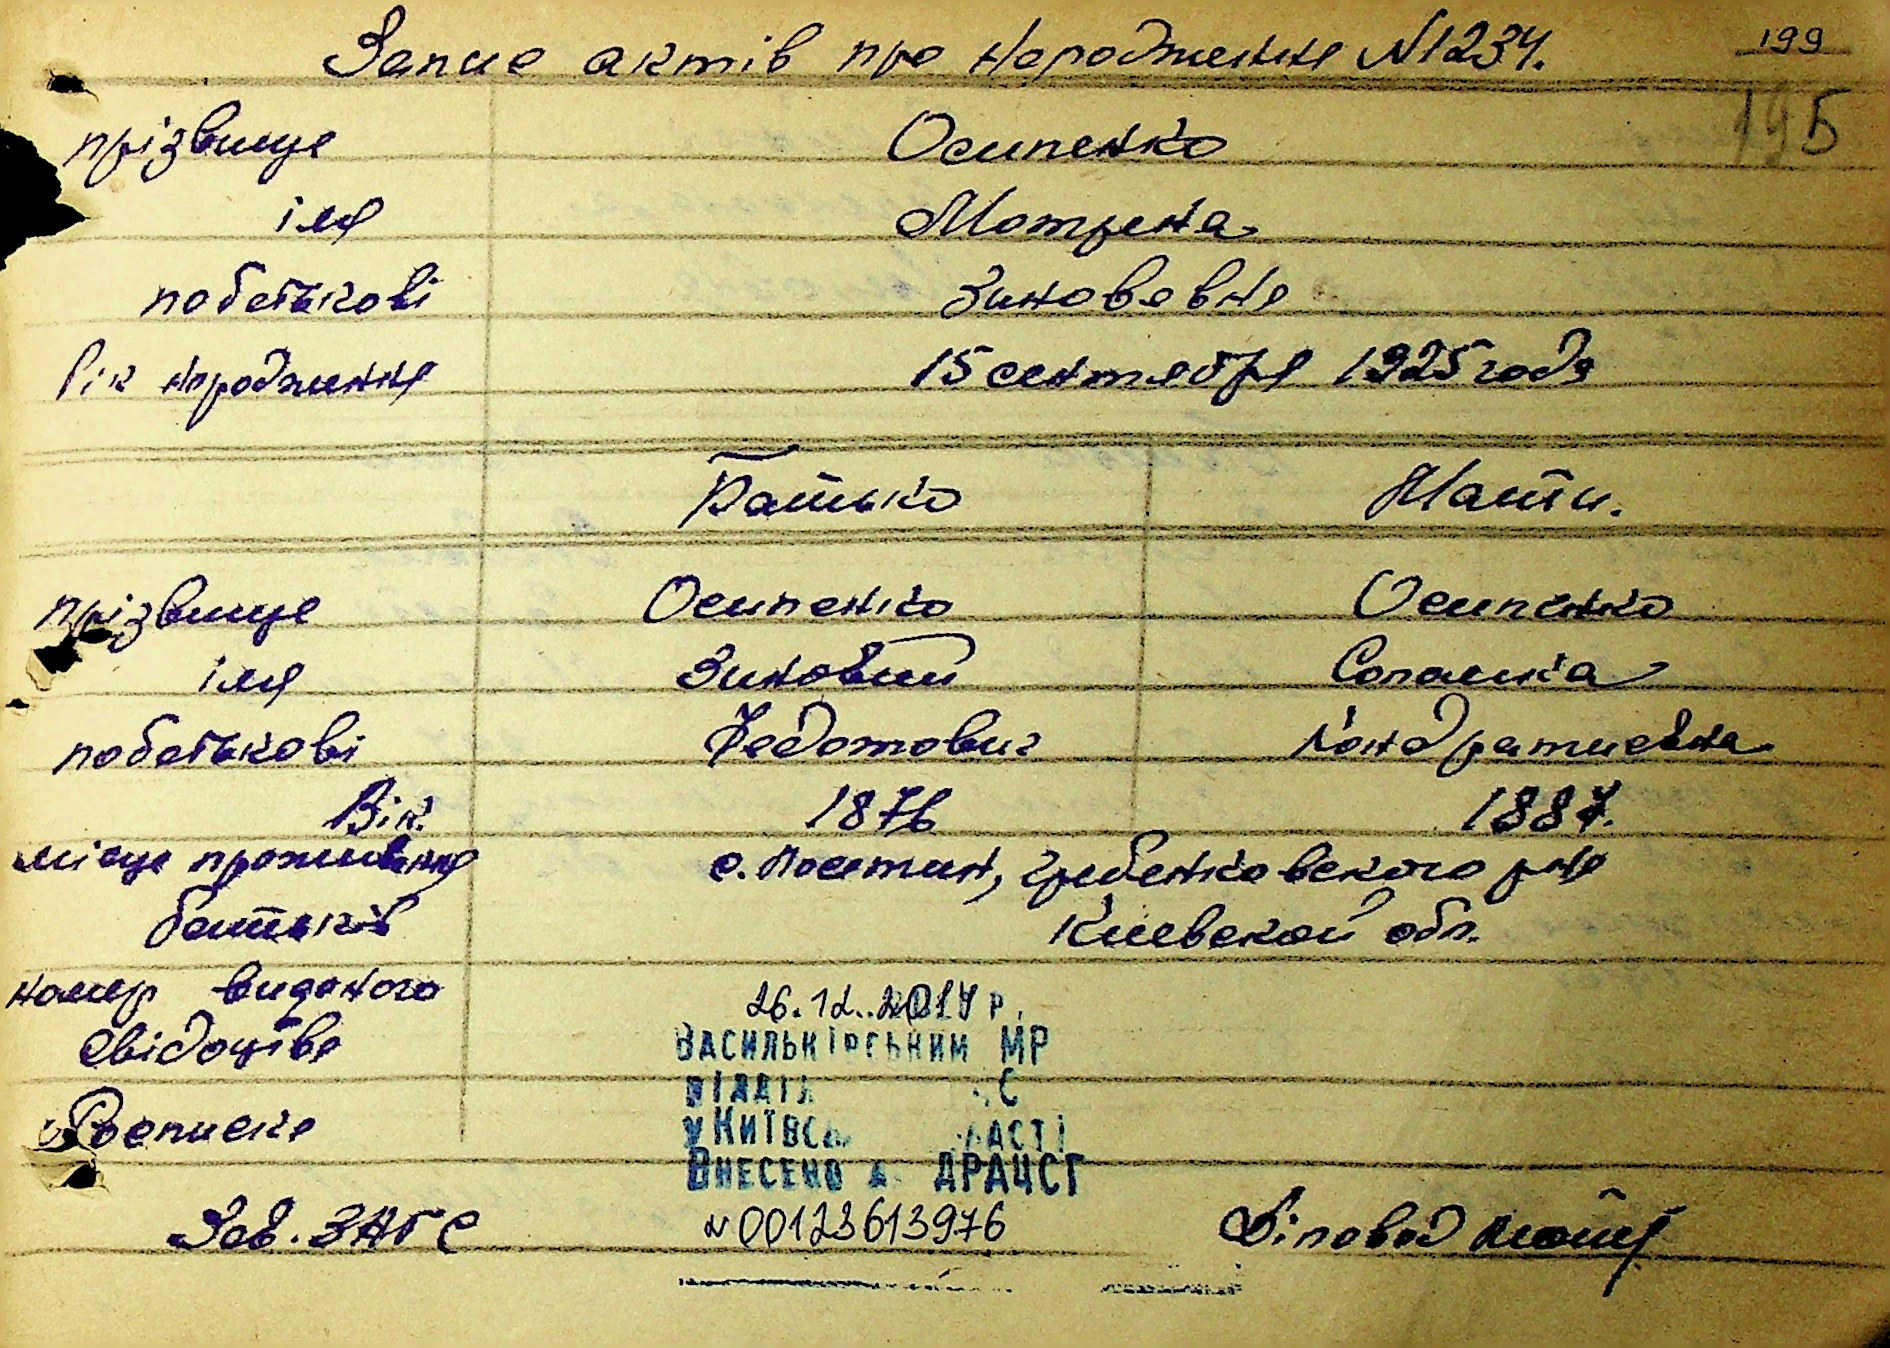 Запис актів про народження N1234.
199
195
прізвище Осипенко
імя Мотрена
побатькові Зиновевна
Рік народження 15 сентября 1925 года
Батько Мати.
прізвище Осипенко Осипенко
імя Зиновий Соломка
побатькові Федотович Кондратиевна
Вік. 1876 1887.
місце проживання с. Ксетин, Гребенковского рна
батьків Киевской обл.
номер виданого
свідоцтва
26.12.2017 р.
Васильківським МР
відділ С
у Київс ласті
Внесено ДРАЦСГ
Росписка
Зав. ЗАГС N 00123613976 Діловод